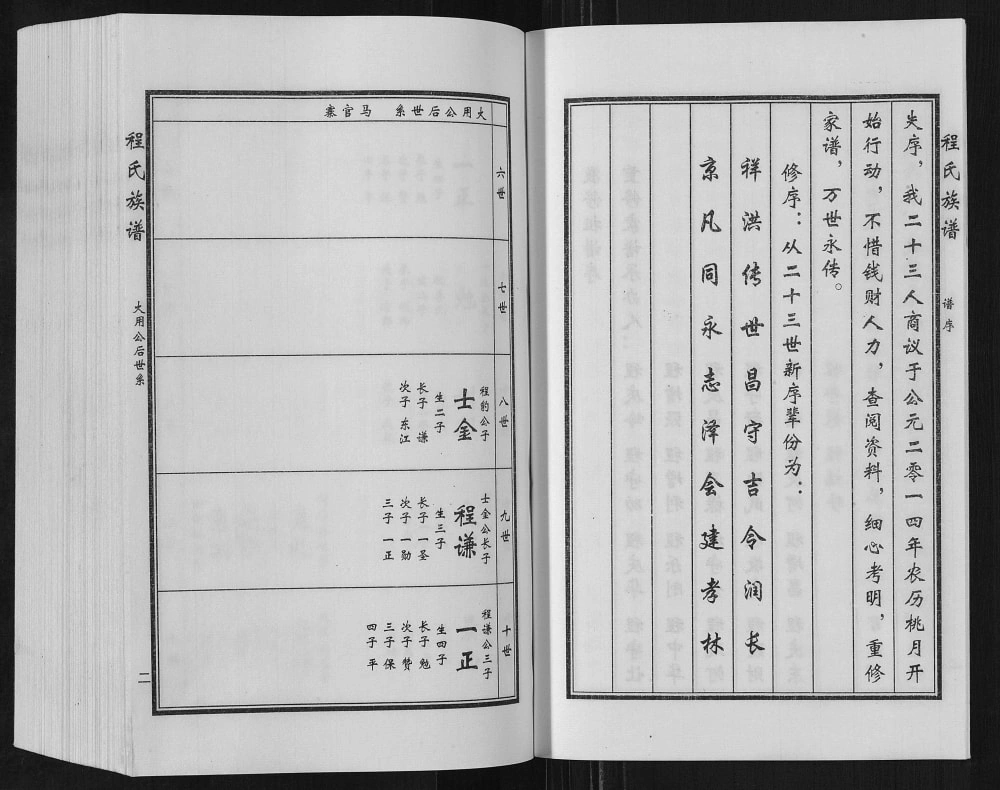 程氏族谱
谱序
失序，我二十三人商议于公元二零一四年农历桃月开
始行动，不惜钱财人力，查阅资料，细心考明，重修
家谱，万世永传。
修序：从二十三世新序辈份为：
祥洪传世昌守吉令润长
京凡同永志泽会建孝林
大用公后世系 马官寨
六世
七世
八世
程豹公子
士金
生二子
长子 谦
次子 东江
九世
士金公长子
程谦
生三子
长子 一圣
次子 一勋
三子 一正
十世
程谦公三子
一正
生四子
长子 勉
次子 赞
三子 保
四子 平
程氏族谱
大用公后世系
二